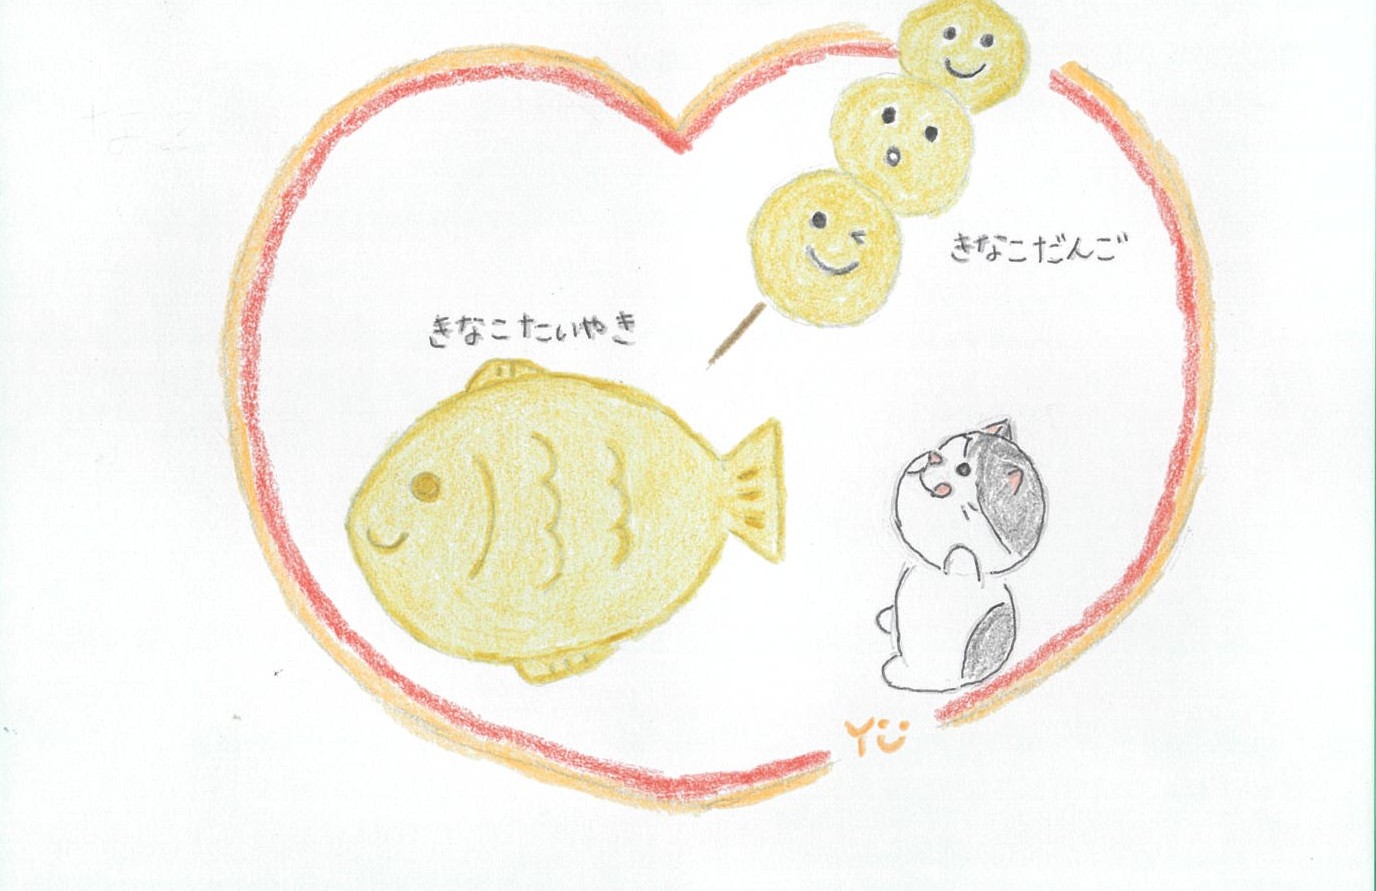 きなこだんご
きなこたいやき
Yü